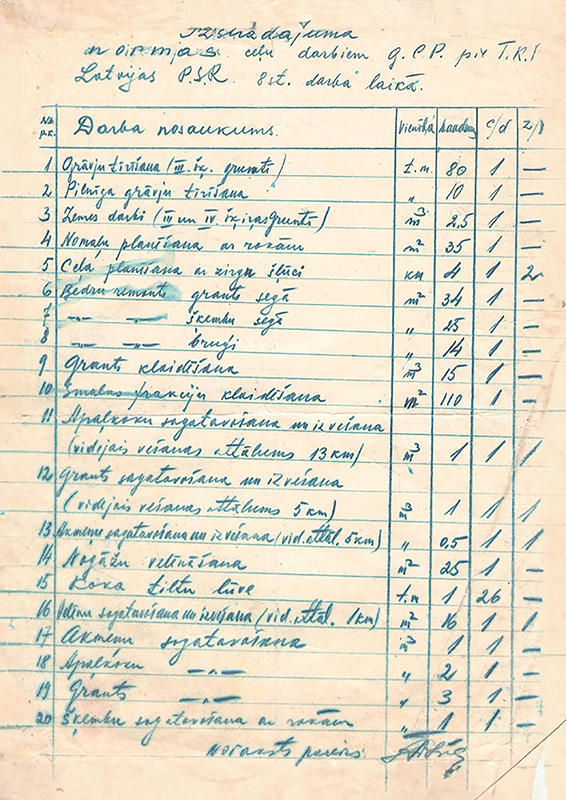 Izstrādājuma
normas ceļu darbiem g.C.P. pie T.R.
Latvijas P.S.R. 8 st. darba laikā.
Nk. p.k. Darba nosaukums. Vienība c/d z/d
1 Grāvju tīrīšana (III. šķ. gruntī) t.m. 80 1 —
2 Pilnīga grāvju tīrīšana „ 10 1 —
3 Zemes darbi (III un IV. šķiras gruntī) m³ 2,5 1 —
4 Nomaļu planēšana ar rokām m² 35 1 —
5 Ceļa planēšana ar zirgu šļūci km 4 1 2
6 Bedru remonts grants segā m² 34 1 —
7 —„— —„— šķembu segā „ 25 1 —
8 —„— —„— bruģī „ 14 1 —
9 Grants klaidēšana m³ 15 1 —
10 Smalno frakciju klaidēšana m² 110 1 —
11 Apaļkoku sagatavošana un izvešana
(vidējais vešanas attālums 13 km) m³ 1 1 1
12 Grants sagatavošana un izvešana
(vidējais vešanas attālums 5 km) m³ 1 1 1
13 Akmeņu sagatavošana un izvešana (vid. attāl. 5 km) „ 0,5 1 1
14 Nogāžu velēnāšana m² 25 1 —
15 Koka tiltu būve t.m 1 26 —
16 Velēnu sagatavošana un izvešana (vid. attāl. 1 km) m² 16 1 1
17 Akmeņu sagatavošana m³ 1 1 —
18 Apaļkoku —„— „ 2 1 —
19 Grants —„— „ 3 1 —
20 Šķembu sagatavošana ar rokām „ 1 1 —
Noraksts pareizs